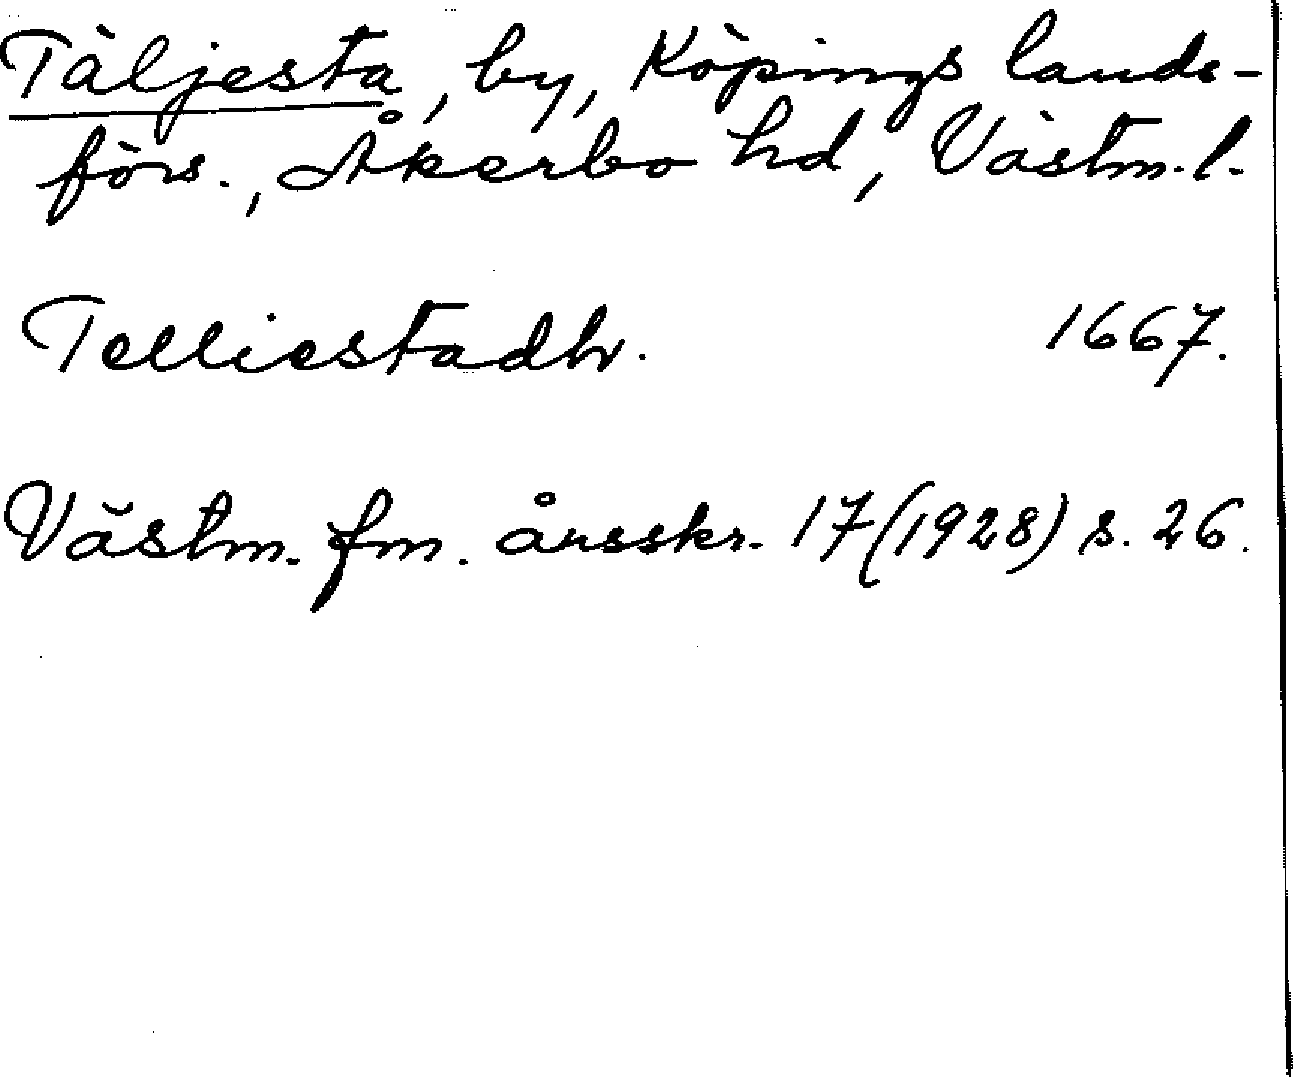 Täljesta, by, Köpings lands-
förs., Åkerbo hd, Västm. l.
Telliestadh. 1667.
Västm. fm. årsskr. 17 (1928) s. 26.